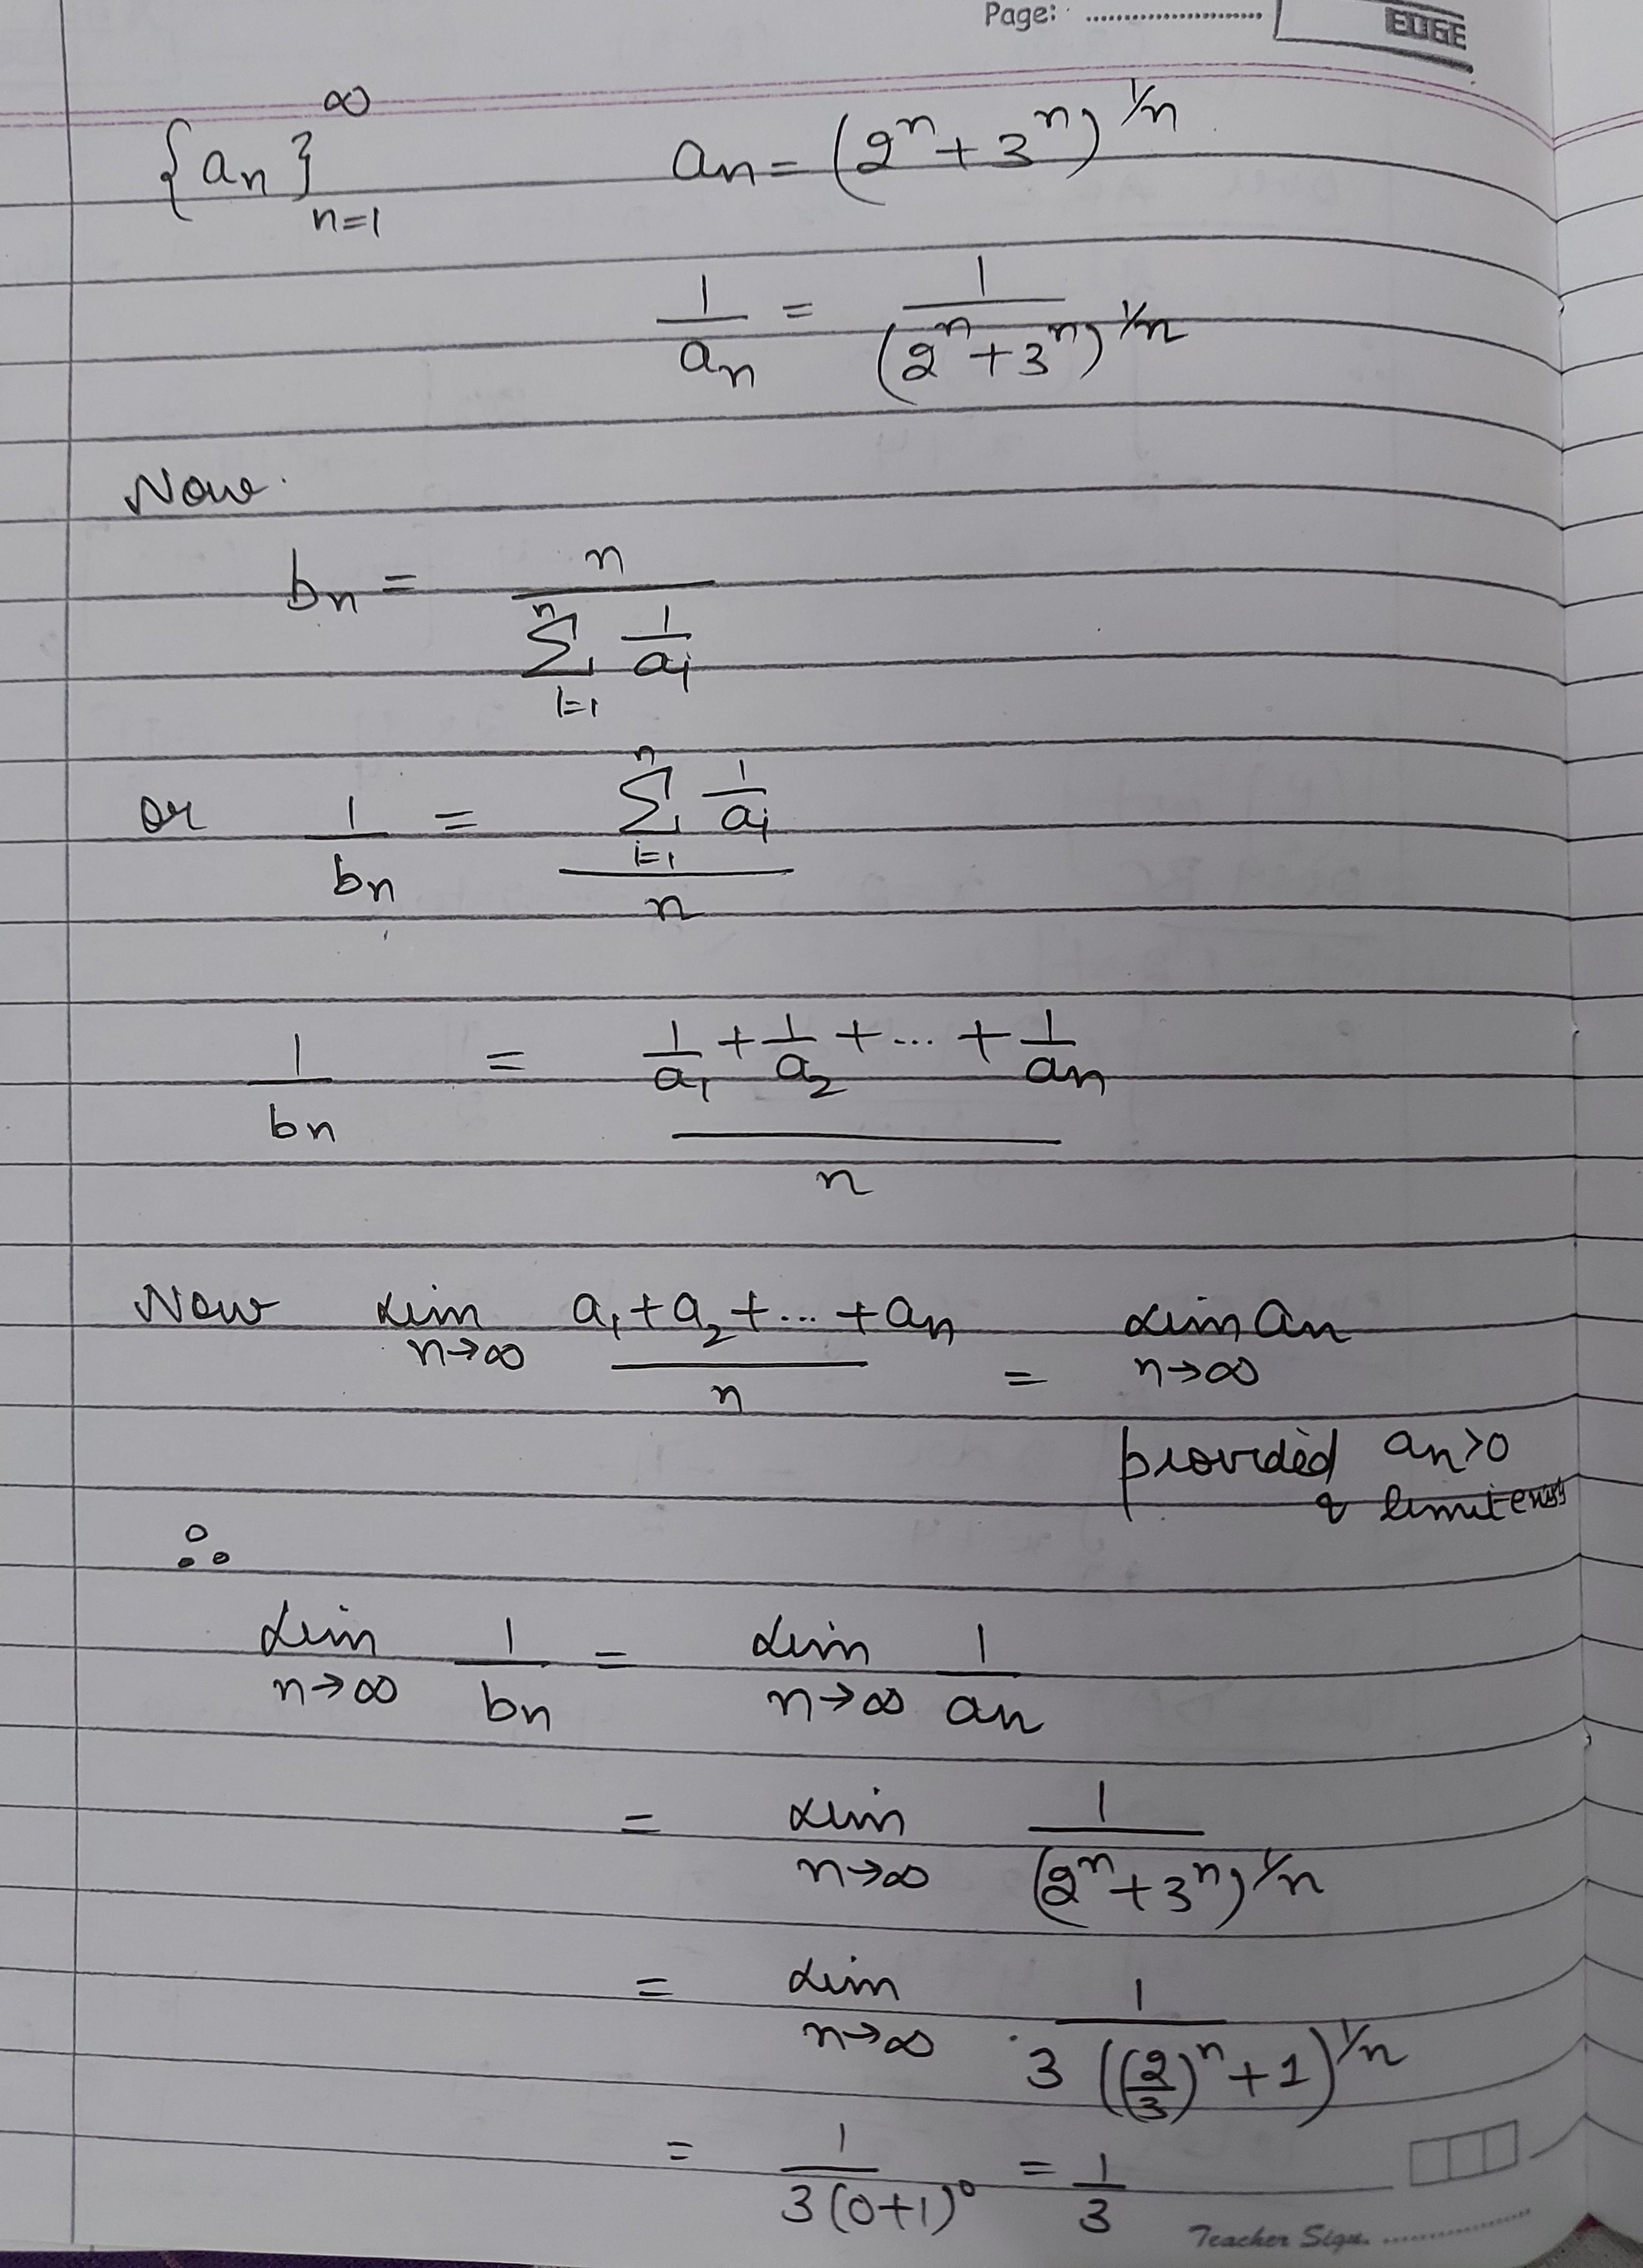 Page: ........................ EDGE
{aₙ}ₙ₌₁^∞ aₙ = (2ⁿ + 3ⁿ)^(1/n)
1/aₙ = 1/(2ⁿ + 3ⁿ)^(1/n)
Now
bₙ = n / ∑ᵢ₌₁ⁿ 1/aᵢ
or 1/bₙ = (∑ᵢ₌₁ⁿ 1/aᵢ) / n
1/bₙ = (1/a₁ + 1/a₂ + ... + 1/aₙ) / n
Now lim n→∞ (a₁ + a₂ + ... + aₙ) / n = lim n→∞ aₙ
provided aₙ>0
& limit exist
∴
lim n→∞ 1/bₙ = lim n→∞ 1/aₙ
= lim n→∞ 1/(2ⁿ + 3ⁿ)^(1/n)
= lim n→∞ 1/(3 ((2/3)ⁿ + 1)^(1/n))
= 1/(3(0+1)⁰) = 1/3
Teacher Sign. ........................